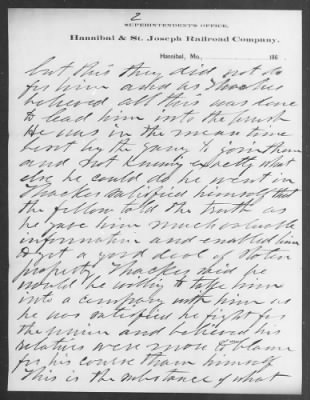 2
SUPERINTENDENT'S OFFICE,
Hannibal & St. Joseph Railroad Company.
Hannibal, Mo., 186
but this they did not do
for him and as Thacker
believed all this was done
to lead him into the brush
He was in the mean time
beset by the gang to join them
and not knowing exactly what
else he could do he went in
Thacker satisfied himself that
the fellow told the truth as
he gave him much valuable
information and enabled him
to get a good deal of stolen
property, Thacker said he
would be willing to take him
into a company with him as
he was satisfied he fight for
the and believed his
relatives were more to blame
for his course than himself
This is the substance of what